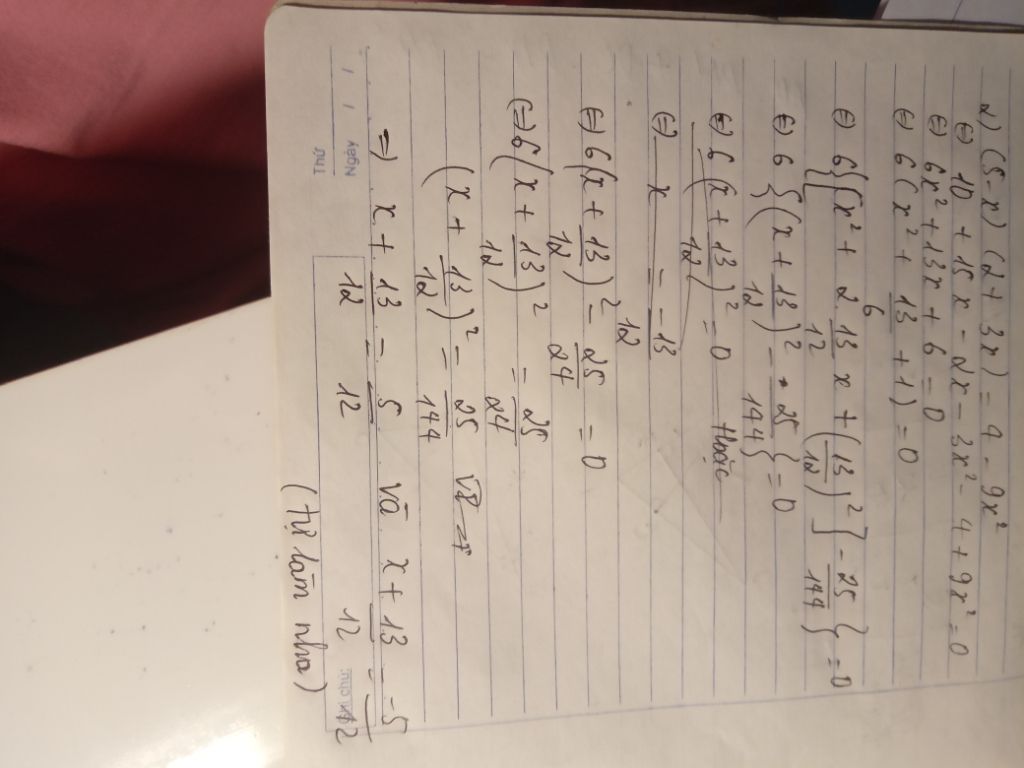 2) (5-x) (2+3x) = 4 - 9x²
⇔ 10 + 15x - 2x - 3x² - 4 + 9x² = 0
⇔ 6x² + 13x + 6 = 0
⇔ 6(x² + 13/6 + 1) = 0
⇔ 6{[x² + 2 13/12 x + (13/12)²] - 25/144} = 0
⇔ 6{(x + 13/12)² - 25/144} = 0
⇔ 6(x + 13/12)² = 0 hoặc
⇔ x = -13/12
⇔ 6(x + 13/12)² - 25/24 = 0
⇔ 6(x + 13/12)² = 25/24
(x + 13/12)² = 25/144
⇒ x + 13/12 = 5/12 và x + 13/12 = -5/12
(tự làm nha)
Thứ
Ngày / /
Ghi chú: